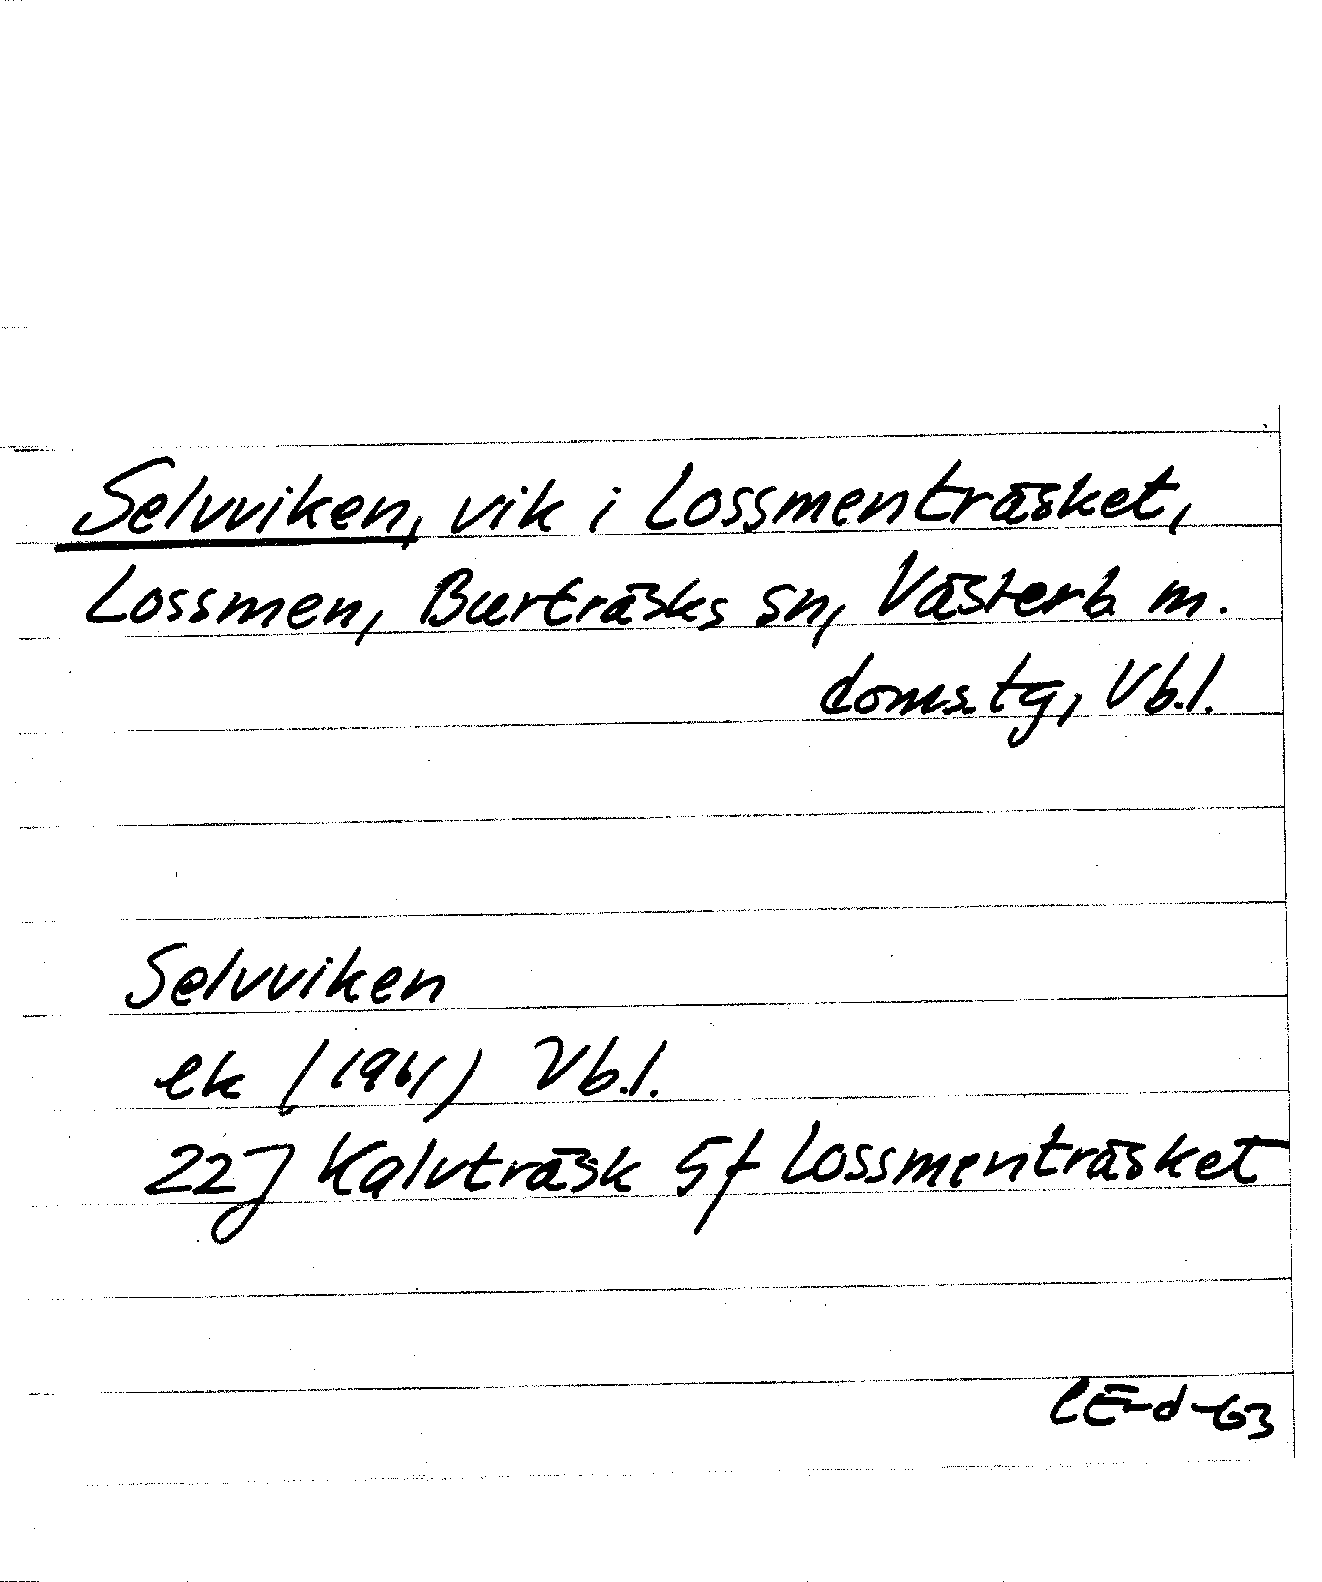 Selvviken, vik i Lossmenträsket,
Lossmen, Burträsks sn, Västerb m.
doms.tg, Vb.l.
Selvviken
ek (1961) Vb.l.
22J Kalvträsk 5f Lossmenträsket
CE-d-63